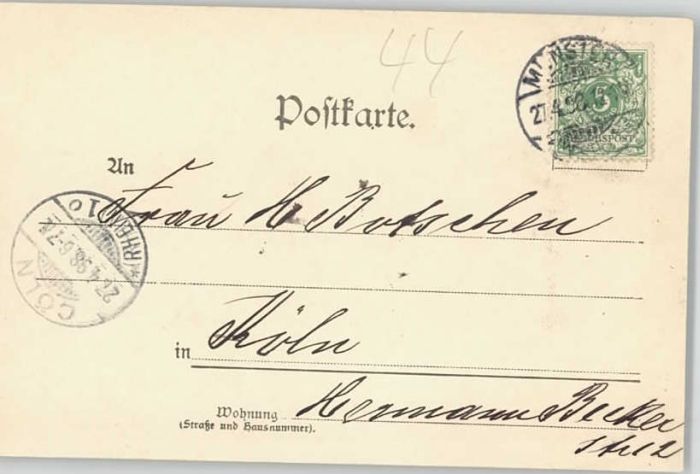 44
Postkarte.
MÜNSTER
27.4.98.
5
REICHSPOST
An
Frau H Botschen
CÖLN (RHEIN) 1
27.4.98. 6-7 N
in Köln
Wohnung
(Straße und Hausnummer).
Hermann Becker
str 2